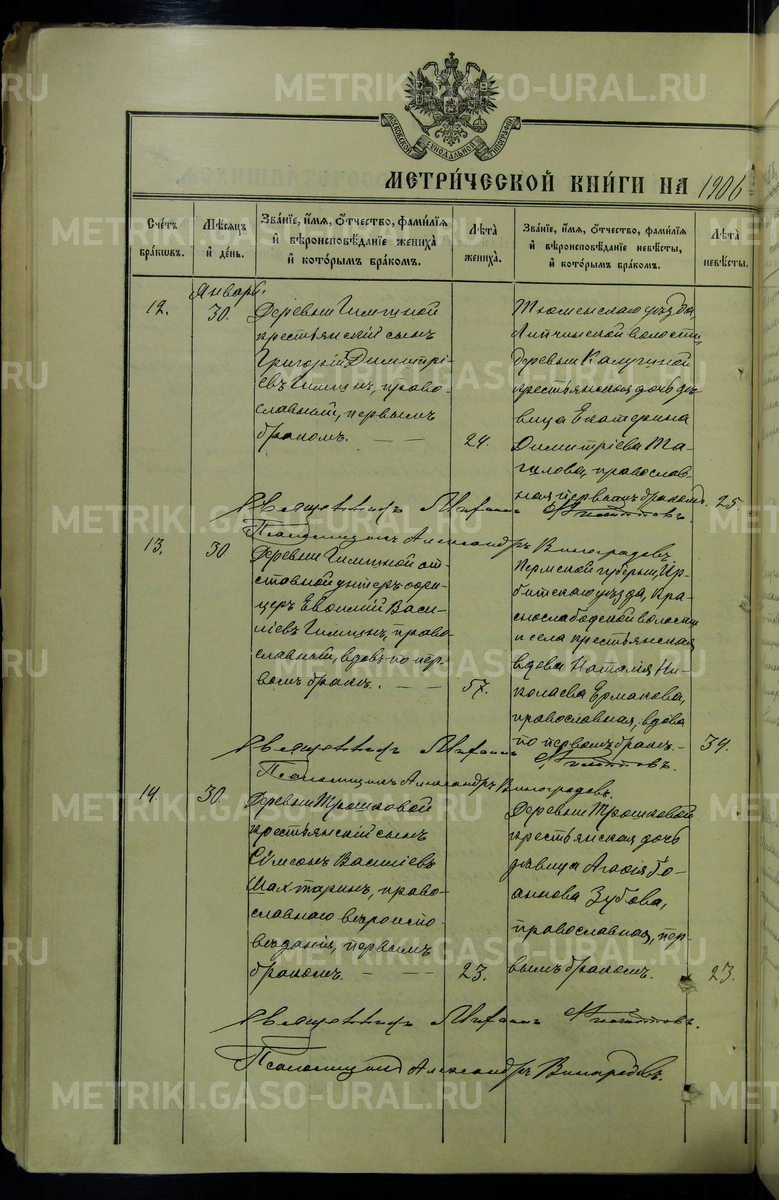 МОСКОВСКОЙ СИНОДАЛЬНОЙ ТИПОГРАФІИ
МЕТРИ́ЧЕСКОЙ КНИ́ГИ НА 1906
Сче́тъ бра́кωвъ.
Мѣ́сяцъ и де́нь.
Зва́нїе, и́мя, о́тчество, фами́лїя и вѣроисповѣ́данїе жениха̀ и кото́рымъ бра́комъ.
Лѣ́та жениха̀.
Зва́нїе, и́мя, о́тчество, фами́лїя и вѣроисповѣ́данїе невѣ́сты, и кото́рымъ бра́комъ.
Лѣ́та невѣ́сты.
Январь.
12.
30.
Деревни Гилиной
крестьянскій сынъ
Григорій Димитрі-
евъ Гилинъ, право-
славный, первымъ
бракомъ.
24.
Тюменскаго уѣзда,
Липчинской волости,
деревни Калугиной
крестьянская дочь дѣ-
вица Екатерина
Димитріева Та-
гилова, православ-
ная первымъ бракомъ.
25.
Священникъ Михаилъ
Псаломщикъ Александръ Виноградовъ.
13.
30
Деревни Гилиной от-
ставной унтеръ-офи-
церъ Евѳимій Васи-
ліевъ Гилинъ, право-
славный, вдовъ по пер-
вомъ бракѣ.
57.
Пермской губерніи, Ир-
битскаго уѣзда, Кра-
снослободской волости
и села крестьянская
вдова Наталія Ни-
колаева Ермакова,
православная, вдова
по первомъ бракѣ.
39.
Священникъ Михаилъ
Псаломщикъ Александръ Виноградовъ.
14.
30
Деревни Трошковой
крестьянскій сынъ
Сѵмеонъ Василіевъ
Шахтаринъ, право-
славнаго вѣроиспо-
вѣданія, первымъ
бракомъ.
23.
Деревни Трошковой
крестьянская дочь
дѣвица Агаѳія Іо-
аннова Зубова,
православная, пер-
вымъ бракомъ.
23.
Священникъ Михаилъ
Псаломщикъ Александръ Виноградовъ.
METRIKI.GASO-URAL.RU